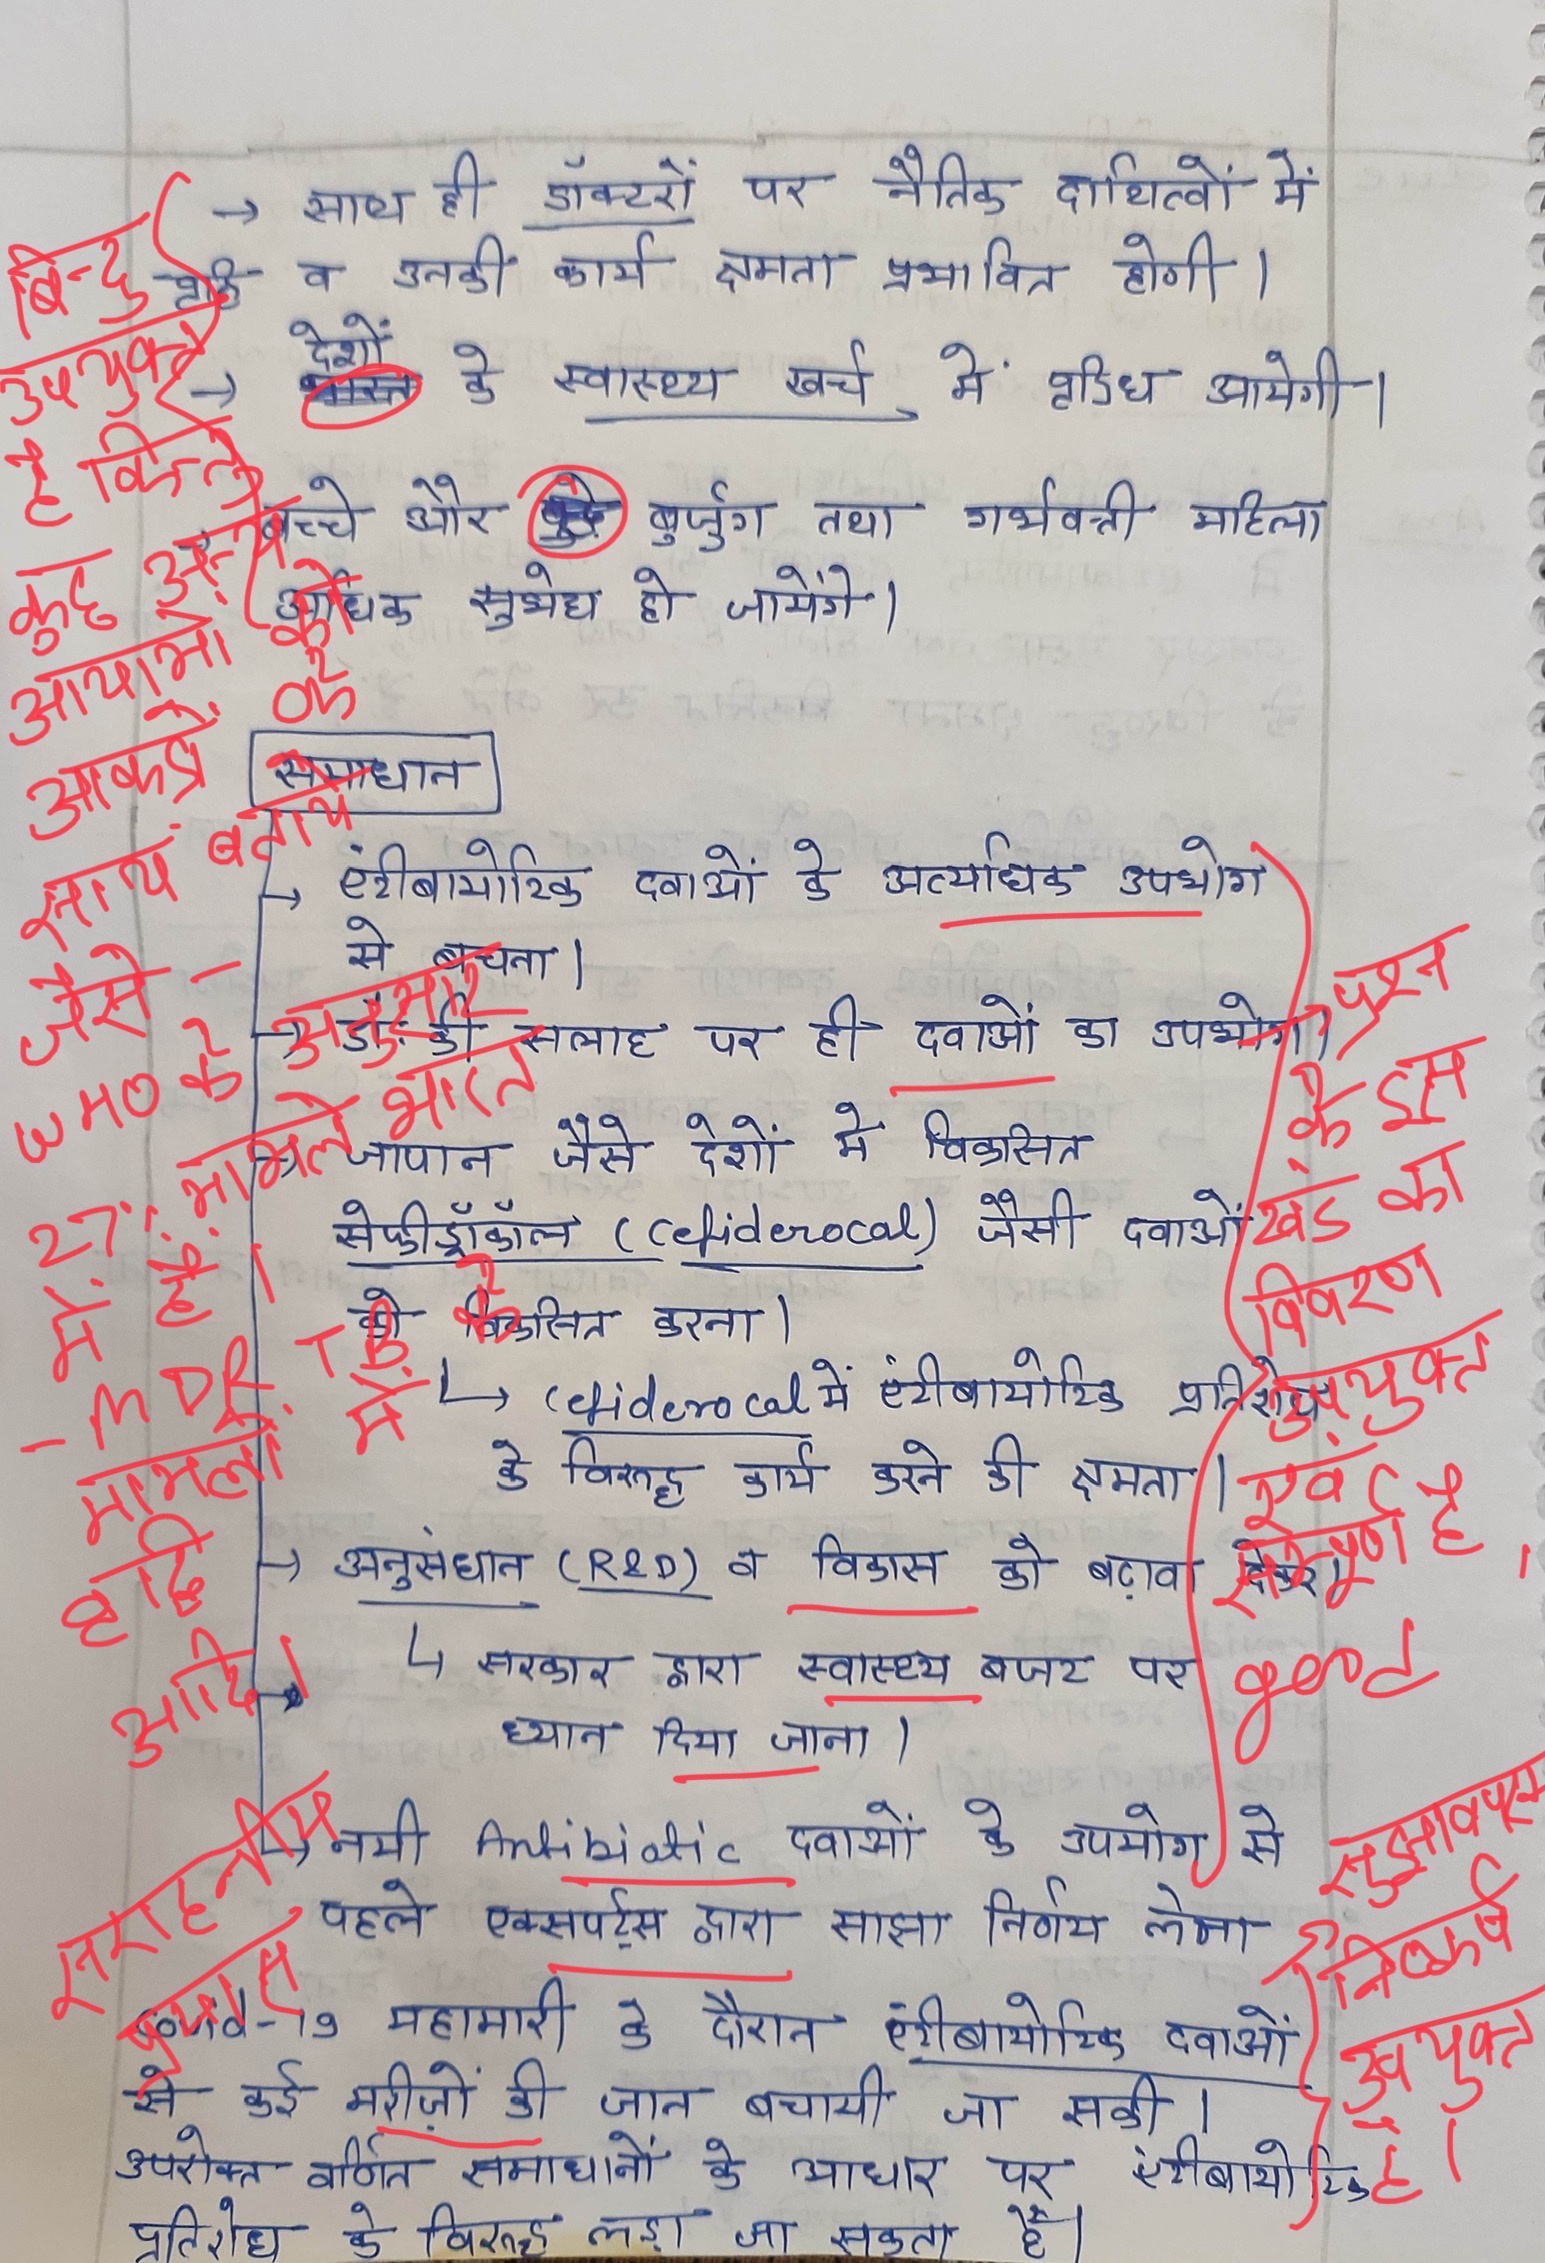 → साथ ही डॉक्टरों पर नैतिक दायित्वों में
वृद्धि व उनकी कार्य क्षमता प्रभावित होगी।
→ देशों के स्वास्थ्य खर्च में वृद्धि आयेगी।
बच्चे और बुर्जुग तथा गर्भवती महिला
अधिक सुभेद्य हो जायेंगे।
बिन्दु
उपयुक्त
है किन्तु
कुछ अन्य
आयामों को
आकड़ों के
साथ बताये
जैसे -
WHO के अनुसार
27% मामले भारत
में है।
- MDR TB के
मामलों में
वृद्धि
आदि।
समाधान
→ एंटीबायोटिक दवाओं के अत्यधिक उपभोग
से बचना।
→ डॉ. की सलाह पर ही दवाओं का उपभोग।
→ जापान जैसे देशों में विकसित
सेफीड्रॉकॉल (Cefiderocal) जैसी दवाओं
को विकसित करना।
↳ Cefiderocal में एंटीबायोटिक प्रतिरोध
के विरूद्ध कार्य करने की क्षमता।
→ अनुसंधान (R&D) व विकास को बढ़ावा देकर।
↳ सरकार द्वारा स्वास्थ्य बजट पर
ध्यान दिया जाना।
↳ नयी Antibiotic दवाओं के उपयोग से
पहले एक्सपर्ट्स द्वारा साझा निर्णय लेना
प्रश्न
के इस
खंड का
विवरण
उपयुक्त
एवं
सारपूर्ण है।
good
सराहनीय
प्रयास
Covid-19 महामारी के दौरान एंटीबायोटिक दवाओं
से कई मरीज़ों की जान बचायी जा सकी।
उपरोक्त वर्णित समाधानों के आधार पर एंटीबायोटिक
प्रतिरोध के विरूद्ध लड़ा जा सकता है।
सुझावपरक
निष्कर्ष
उपयुक्त
है।